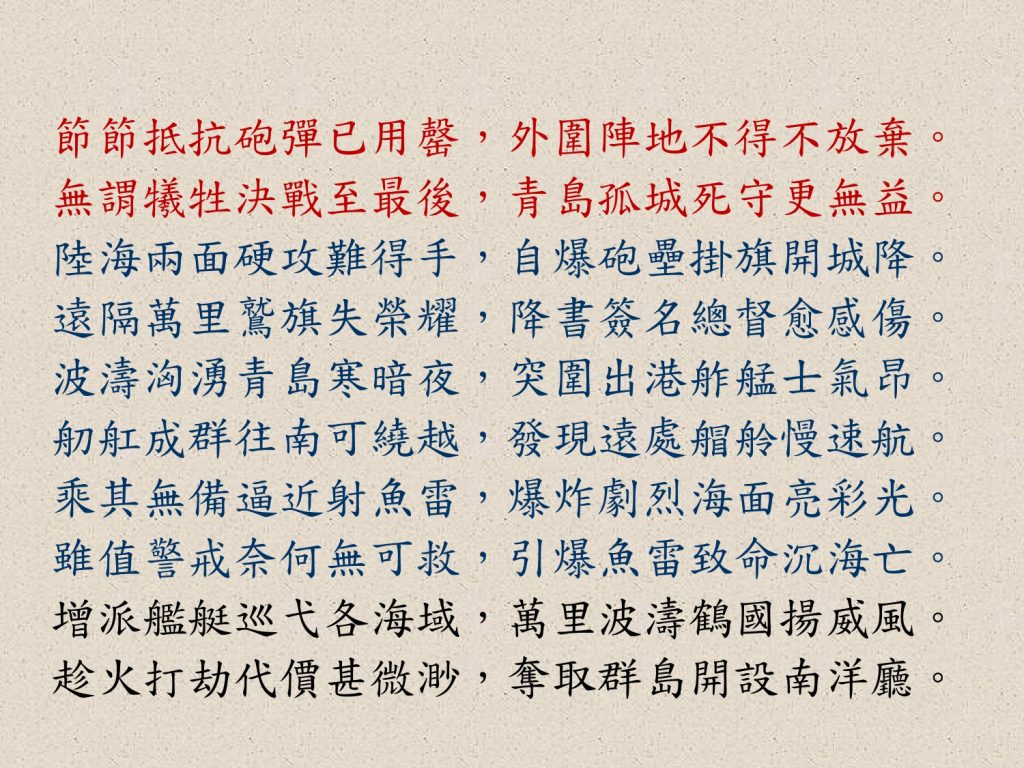 節節抵抗砲彈已用罄，外圍陣地不得不放棄。
無謂犧牲決戰至最後，青島孤城死守更無益。
陸海兩面硬攻難得手，自爆砲壘掛旗開城降。
遠隔萬里鷲旗失榮耀，降書簽名總督愈感傷。
波濤洶湧青島寒暗夜，突圍出港舴艋士氣昂。
舠舡成群往南可繞越，發現遠處艒舲慢速航。
乘其無備逼近射魚雷，爆炸劇烈海面亮彩光。
雖值警戒奈何無可救，引爆魚雷致命沉海亡。
增派艦艇巡弋各海域，萬里波濤鶴國揚威風。
趁火打劫代價甚微渺，奪取群島開設南洋廳。